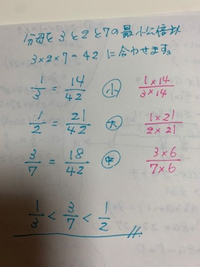 分母を3と2と7の最小公倍数
3×2×7=42 に合わせます。
1/3 = 14/42 小 1×14/3×14
1/2 = 21/42 大 1×21/2×21
3/7 = 18/42 中 3×6/7×6
1/3 < 3/7 < 1/2